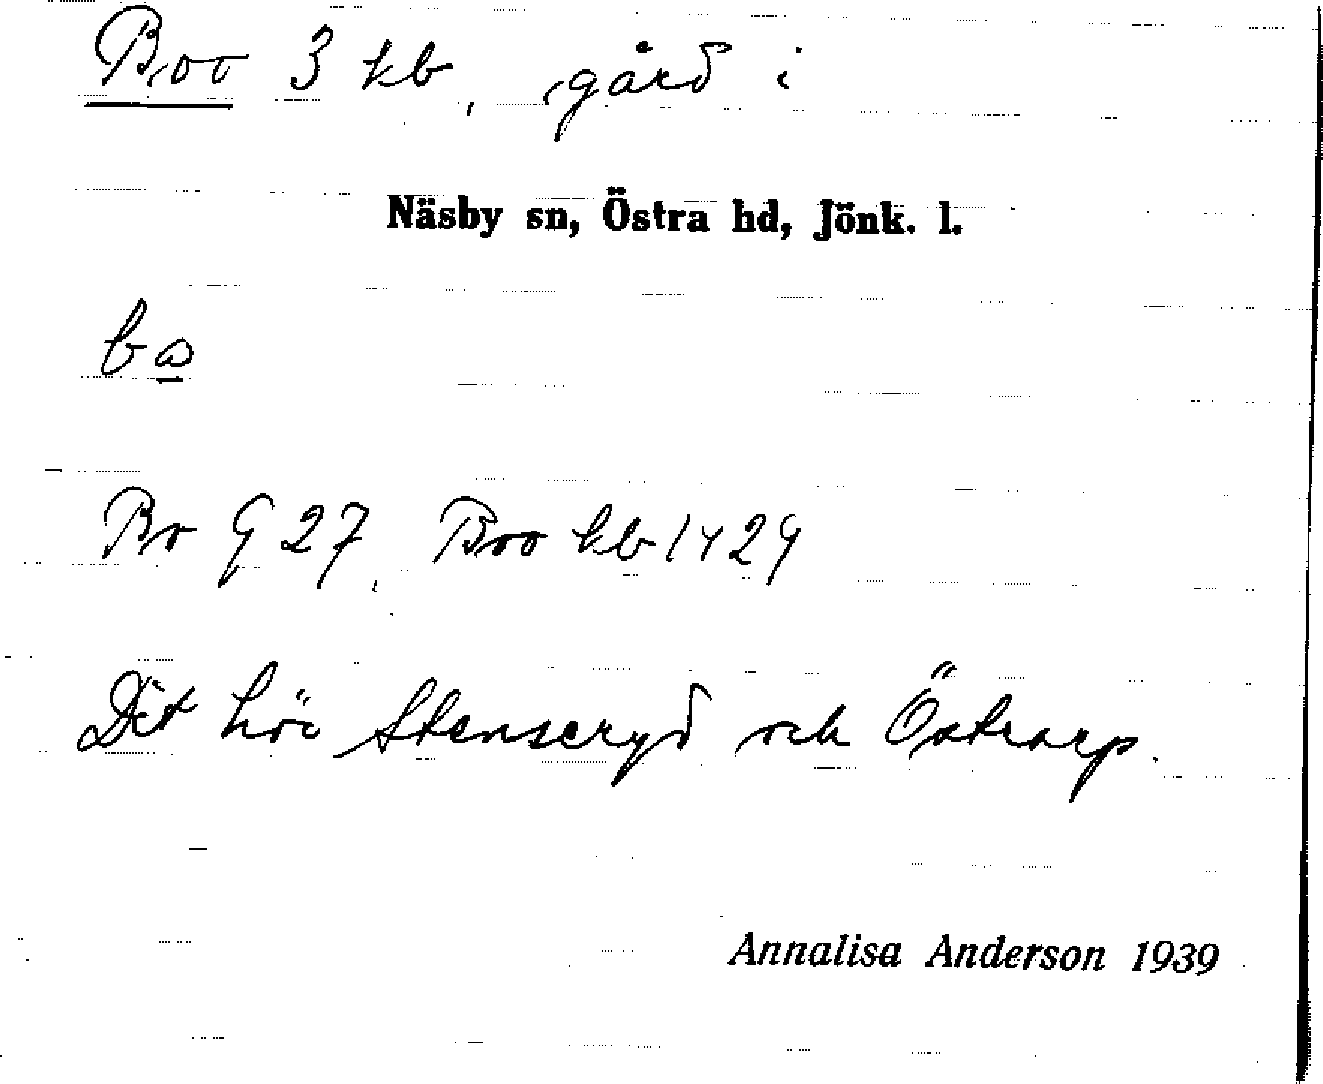 Boo 3 kb, gård i
Näsby sn, Östra hd, Jönk. l.
Bo G 27, Boo kb 1424
Dit hör Stenseryd och Östraarp.
Annalisa Anderson 1939